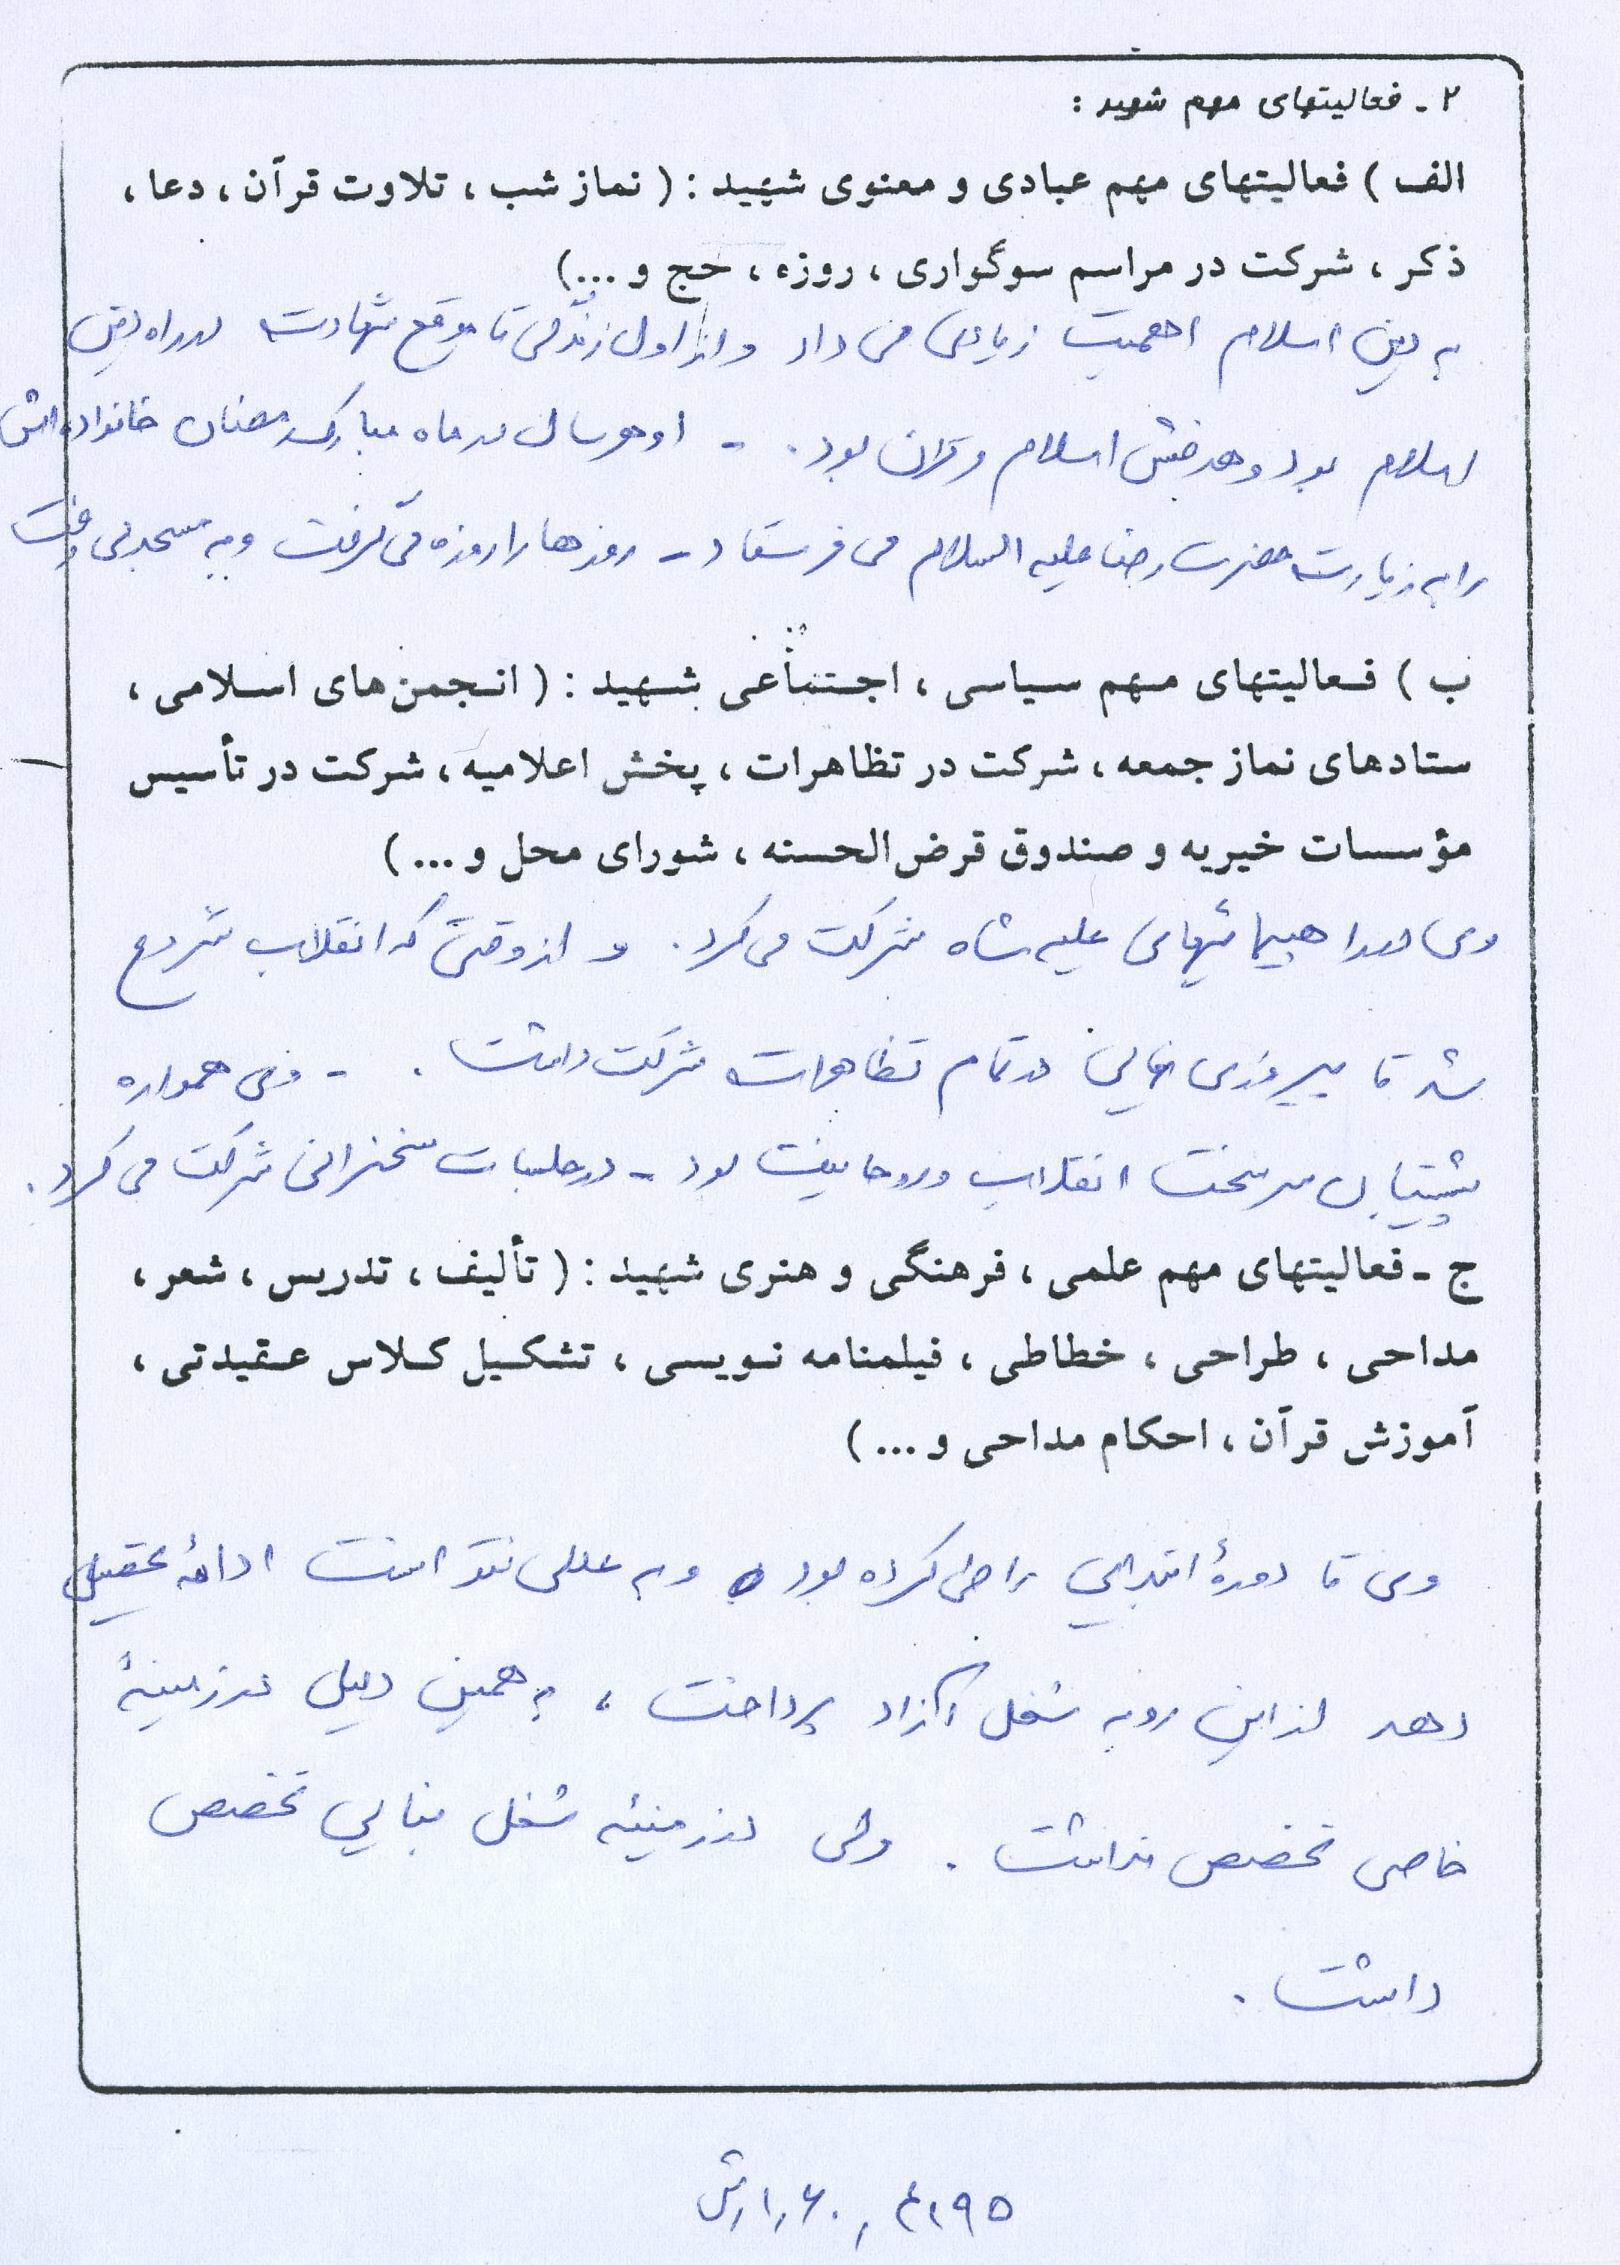 ۲ ـ فعالیتهای مهم شهید :
الف ) فعالیتهای مهم عبادی و معنوی شهید : ( نماز شب ، تلاوت قرآن ، دعا ،
ذکر ، شرکت در مراسم سوگواری ، روزه ، حج و ...)
به دین اسلام اهمیت زیادی می داد و از اول زندگی تا موقع شهادت در راه دین
اسلام بود و هدفش اسلام و قرآن بود . - او هر سال در ماه مبارک رمضان خانواده اش
را به زیارت حضرت رضا علیه السلام می فرستاد - روزها را روزه می گرفت و به مسجد می رفت
ب ) فعالیتهای مهم سیاسی ، اجتماعی شهید : ( انجمن های اسلامی ،
ستادهای نماز جمعه ، شرکت در تظاهرات ، پخش اعلامیه ، شرکت در تأسیس
مؤسسات خیریه و صندوق قرض الحسنه ، شورای محل و ... )
وی در راهپیمائیهای علیه شاه شرکت می کرد . و از وقتی که انقلاب شروع
شد تا پیروزی نهایی در تمام تظاهرات شرکت داشت . - وی همواره
پشتیبان سرسخت انقلاب و روحانیت بود - در جلسات سخنرانی شرکت می کرد .
ج ـ فعالیتهای مهم علمی ، فرهنگی و هنری شهید : ( تألیف ، تدریس ، شعر ،
مداحی ، طراحی ، خطاطی ، فیلمنامه نویسی ، تشکیل کلاس عقیدتی ،
آموزش قرآن ، احکام مداحی و ... )
وی تا دورهٔ ابتدایی را طی کرده بود و به عللی نتوانست ادامهٔ تحصیل
دهد از این رو به شغل آزاد پرداخت ، به همین دلیل در زمینهٔ
خاصی تخصص نداشت . ولی در زمینه شغل بنایی تخصص
داشت .